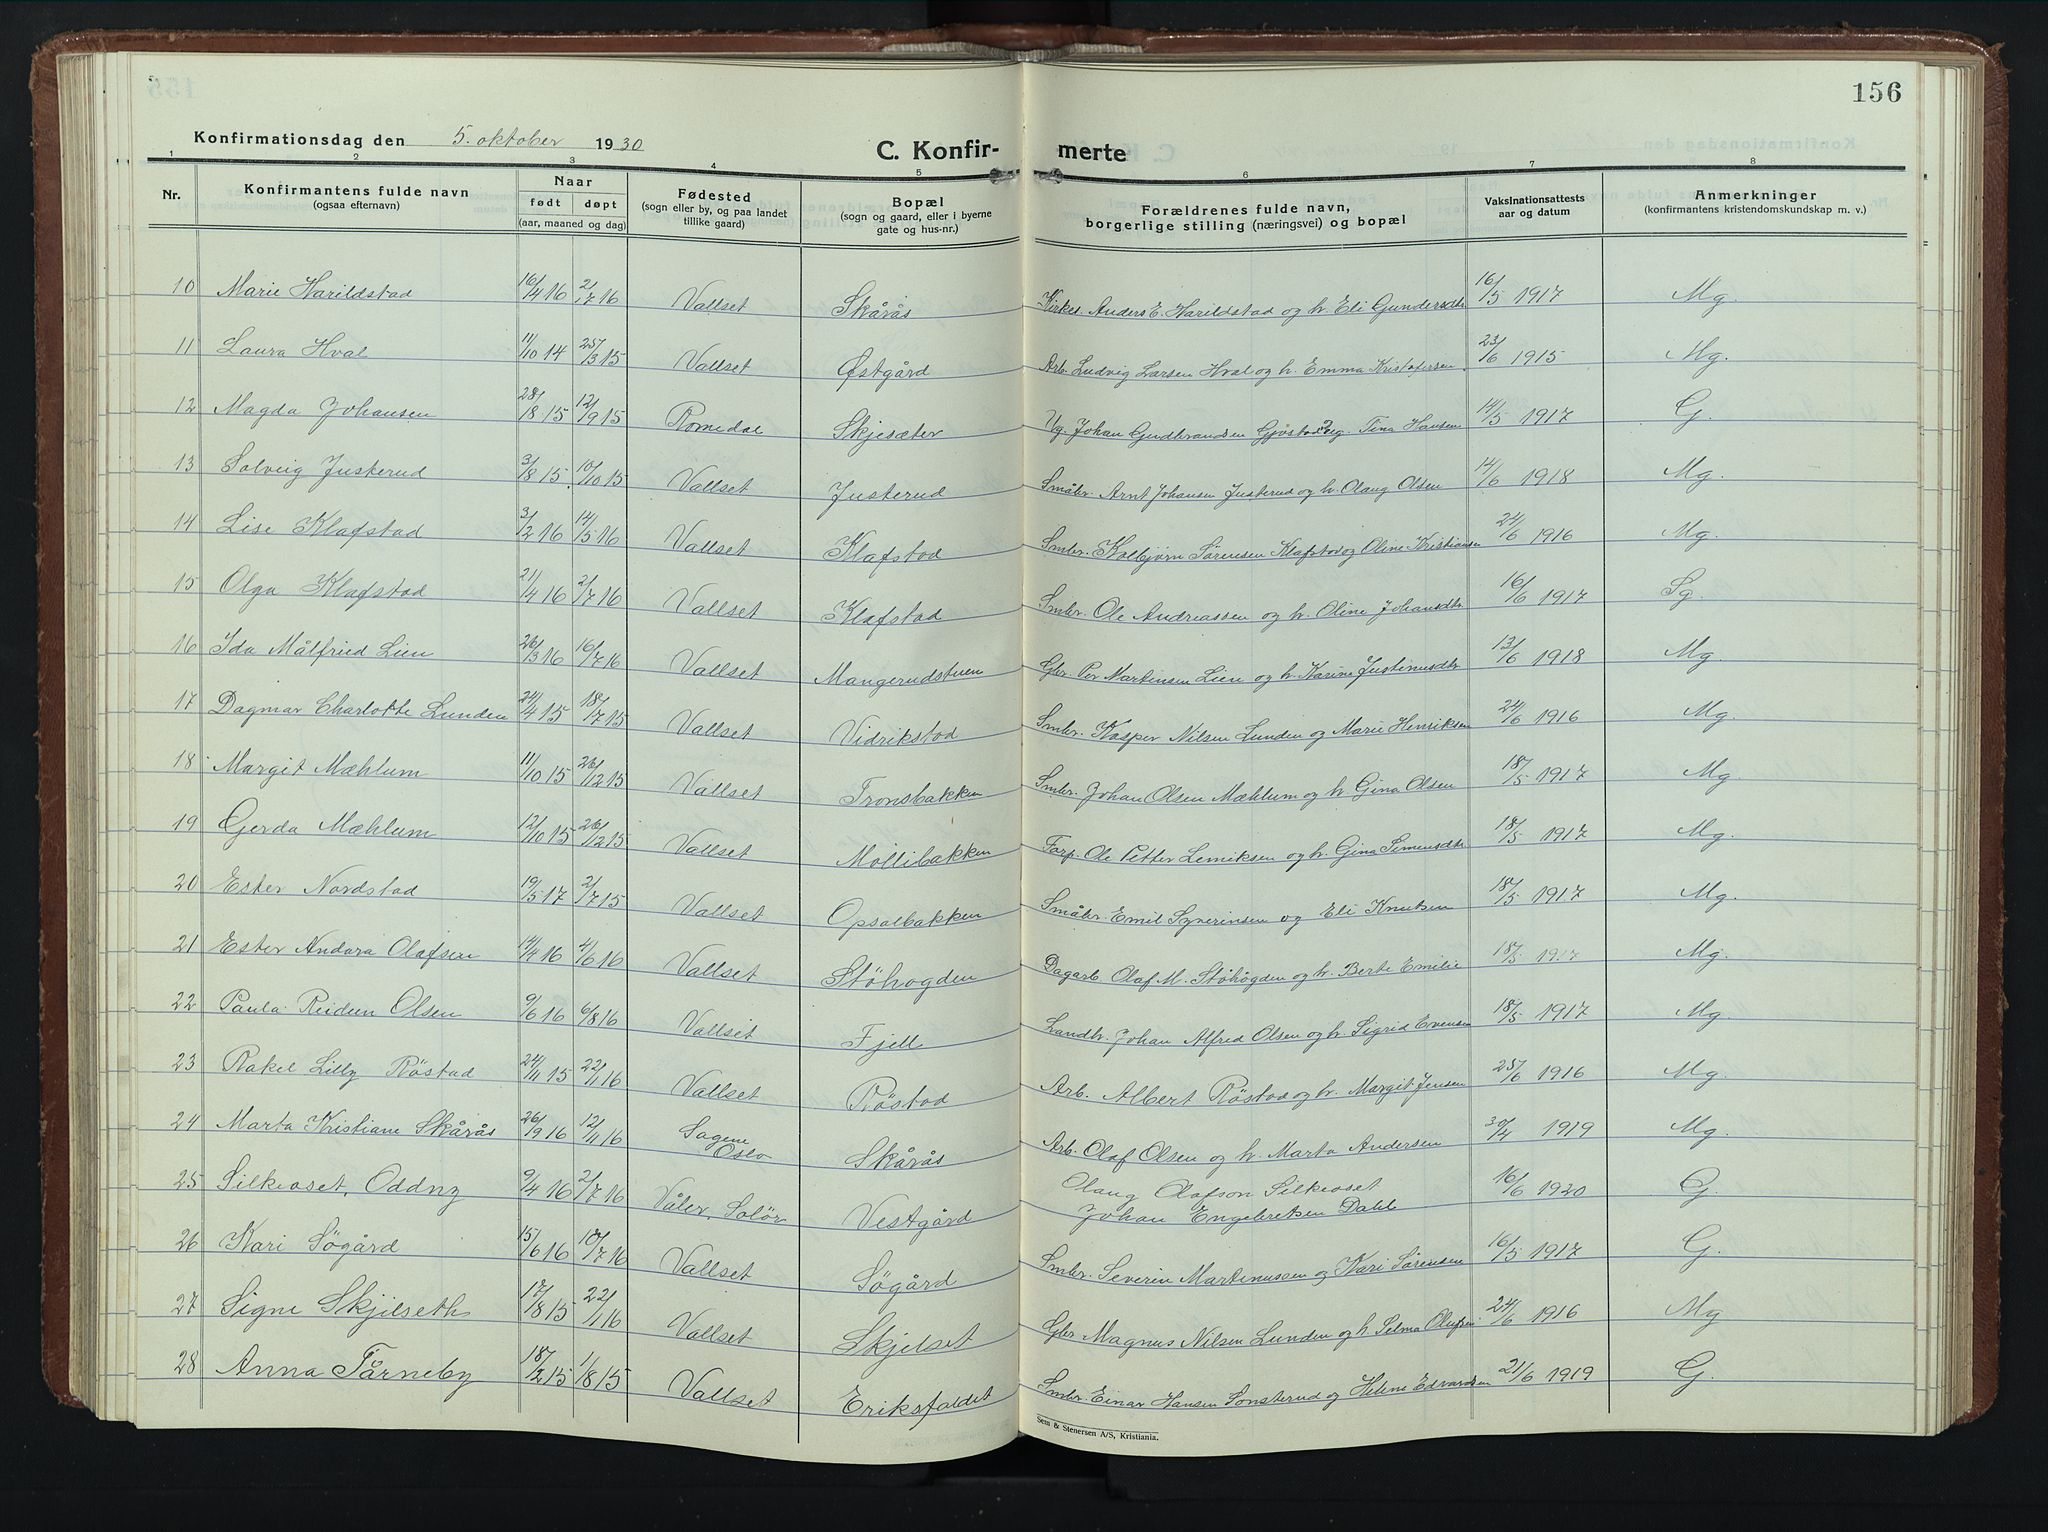 156
Konfirmationsdag den 5. oktober 1930
C. Konfir- merte
1 2 3 4 5 6 7 8
Nr. Konfirmantens fulde navn (ogsaa efternavn) Naar født døpt (aar, maaned og dag) Fødested (sogn eller by, og paa landet tillike gaard) Bopæl (sogn og gaard, eller i byerne gate og hus-nr.) Forældrenes fulde navn, borgerlige stilling (næringsvei) og bopæl Vaksinationsattests aar og datum Anmerkninger (konfirmantens kristendomskundskap m. v.)
10 Marie Harildstad 16/4 16 2/7 16 Vallset Skårås Kirkes. Anders E. Harildstad og h. Eli Gundersdtr 16/5 1917 Mg.
11 Laura Hval 11/10 14 25/3 15 Vallset Østgård Arb. Ludvig Larsen Hval og h. Emma Kristofersen 23/6 1915 Mg.
12 Magda Johansen 28/8 15 12/9 15 Romedal Skjesæter Ug. Johan Gudbrandsen Gjøstad Tina Hansen 14/5 1917 G.
13 Solveig Justerud 3/8 15 10/10 15 Vallset Justerud Småbr. Arnt Johansen Justerud og h. Olaug Olsen 14/6 1918 Mg.
14 Lise Klafstad 3/2 16 14/5 16 Vallset Klafstad Smbr. Kolbjørn Sørensen Klafstad og Oline Kristiansen 24/6 1916 Mg.
15 Olga Klafstad 21/4 16 2/7 16 Vallset Klafstad Smbr. Ole Andreassen og h. Oline Johansdtr 16/6 1917 Sg.
16 Ida Målfried Lien 26/3 16 16/7 16 Vallset Mangerudstuen Gbr. Per Martinsen Lien og h. Karine Justinusdtr 13/6 1918 Mg.
17 Dagmar Charlotte Lunden 24/4 15 18/7 15 Vallset Vidrikstad Smbr. Kasper Nilsen Lunden og Marie Henriksen 24/6 1916 Mg.
18 Margit Mæhlum 11/10 15 26/12 15 Vallset Tronsbakken Smbr. Johan Olsen Mæhlum og h. Gina Olsen 18/5 1917 Mg.
19 Gerda Mæhlum 12/10 15 26/12 15 Vallset Møllibakken Forp. Ole Petter Lemiksen og h. Gina Simensdtr 18/5 1917 Mg.
20 Ester Nordstad 19/5 17 2/7 15 Vallset Opsalbakken Småbr. Emil Syverinsen og Eli Knutsen 18/5 1917 Mg.
21 Ester Andora Olafsen 14/4 16 4/6 16 Vallset Stöhogden Dagarb. Olaf M. Stöhögden og h. Berte Emilie 18/5 1917 Mg.
22 Paula Reidun Olsen 9/6 16 6/8 16 Vallset Fjell Landbr. Johan Alfred Olsen og h. Sigrid Evensen 18/5 1917 Mg.
23 Rakel Lilly Röstad 24/11 15 22/1 16 Vallset Röstad Arb. Albert Röstad og h. Margit Jensen 25/6 1916 Mg.
24 Marta Kristiane Skårås 26/9 16 12/11 16 Sagene Oslo Skårås Arb. Olaf Olsen og h. Marta Andersen 30/4 1919 Mg.
25 Silkeoset, Oddny 9/4 16 2/7 16 Våler, Solör Vestgård Olaug Olafson Silkeoset
Johan Engebretsen Dahl 16/6 1920 G.
26 Kari Sögård 15/6 16 10/7 16 Vallset Sögård Smbr. Severin Martinussen og Kari Sörensen 16/5 1917 G.
27 Signe Skjilseth 17/8 15 22/1 16 Vallset Skjelset Gbr Magnus Nilsen Lunden og h. Selma Olufsen 24/6 1916 Mg
28 Anna Tårneby 18/2 15 1/8 15 Vallset Eriksfaldet Smbr. Einar Hansen Sonsterud og Helene Edvardsen 21/6 1919 G.
Sem & Stenersen A/S, Kristiania.